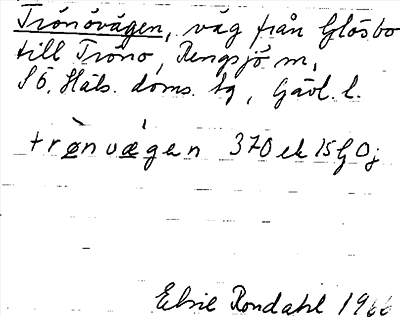 Trönövägen, väg från Glösbo
till Trönö, Rengsjö m,
Sö. Häls. doms. tg, Gävl. l.
trø̀nvægen 370 ek 15G0j
Elsie Rondahl 1966